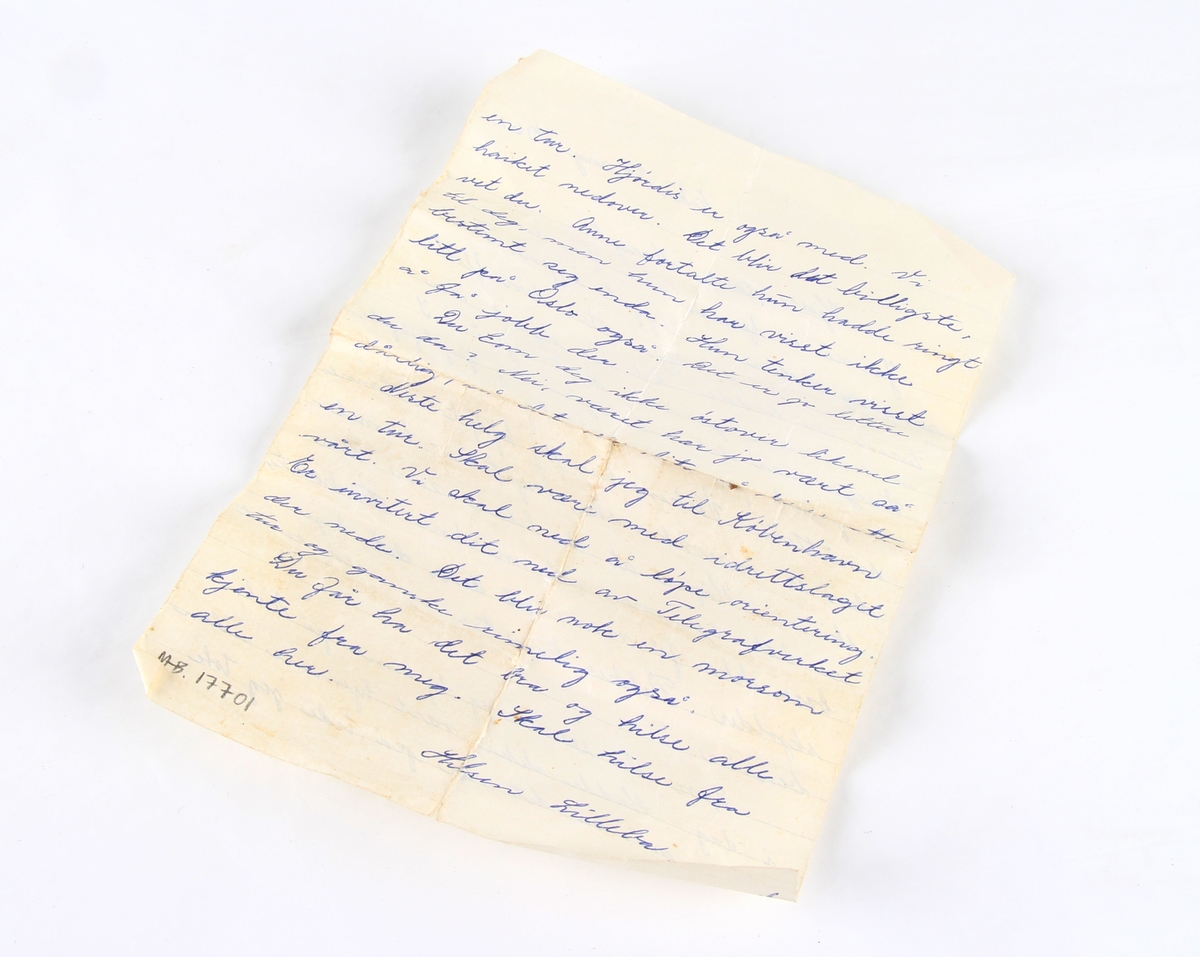 en tur. Hjørdis er også med. Vi
haiket nedover. Det blir det billigste,
vet du. Anne fortalte hun hadde ringt
til deg, men hun har visst ikke
bestemt seg enda. Hun tenker visst
litt på Oslo også. Det er jo lettere
å få jobb der.
Du kom deg ikke østover likevel
du da? Nei, været har jo vært så
dårlig,
Neste helg skal jeg til København
en tur. Skal være med idrettslaget
vårt. Vi skal ned å løpe orientering.
Er invitert dit ned av Telegrafverket
der nede. Det blir nok en morsom
tur og ganske rimelig også.
Du får ha det bra og hilse alle
kjente fra meg. Skal hilse fra
alle her.
Hilsen Lilleba
MB. 17701